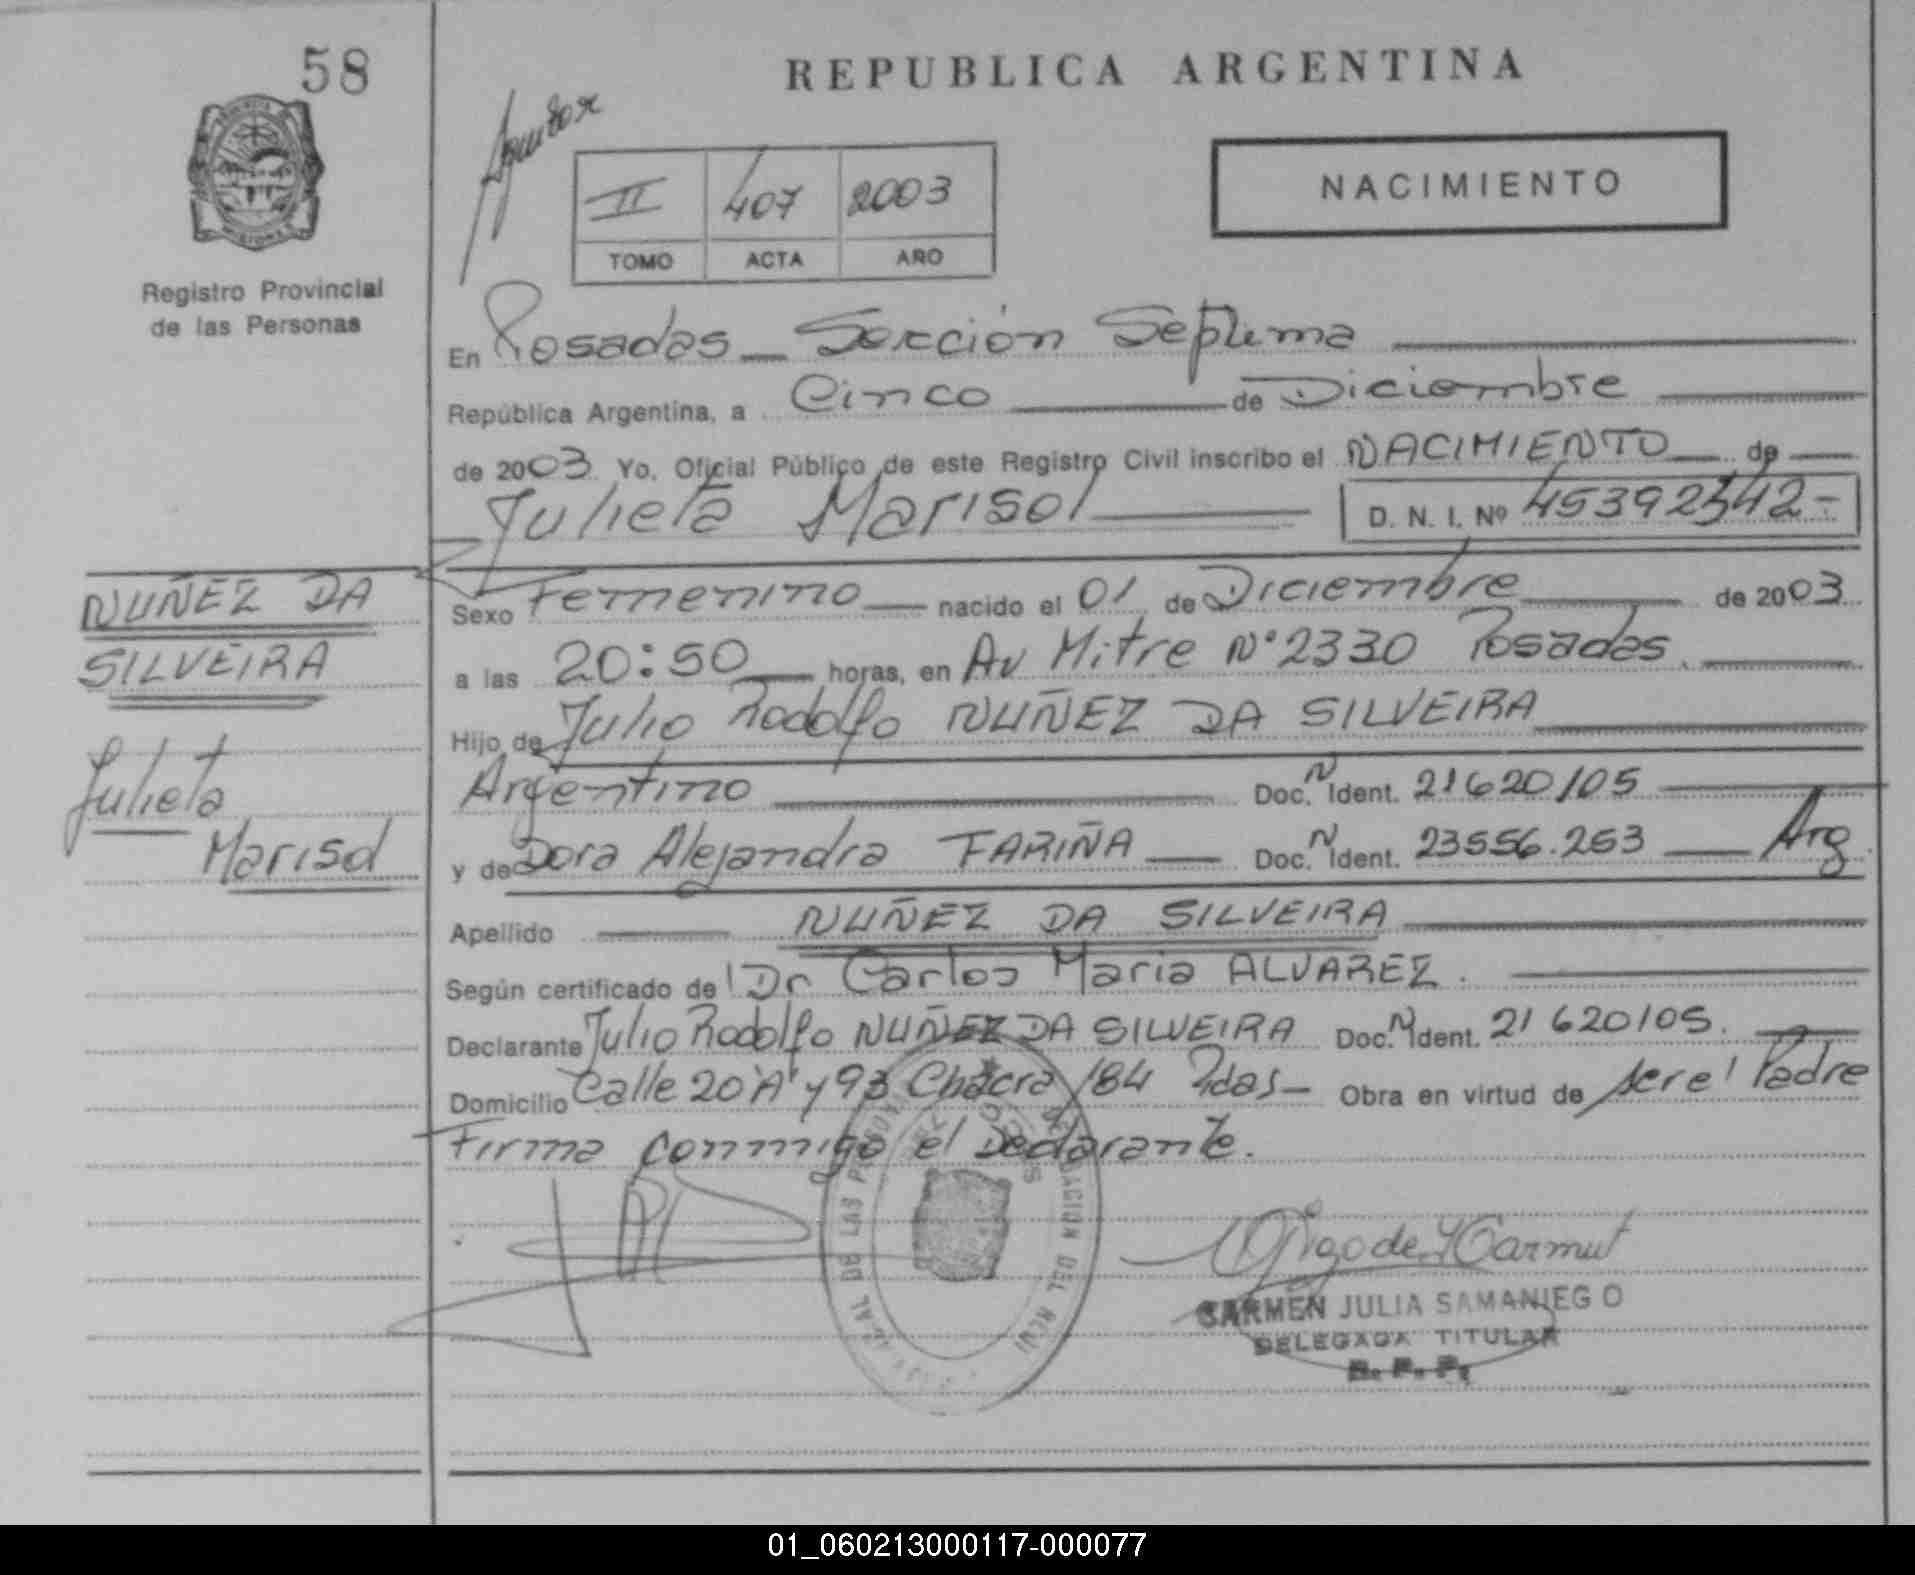 58
REPUBLICA ARGENTINA
II 407 2003
TOMO ACTA AÑO
NACIMIENTO
Registro Provincial
de las Personas
En Posadas Sección Septima
República Argentina, a Cinco de Diciembre
de 2003 Yo, Oficial Público de este Registro Civil inscribo el NACIMIENTO de
Julieta Marisol D. N. I. Nº 45392342-
NUÑEZ DA
SILVEIRA
Julieta
Marisol
Sexo Femenino nacido el 01 de Diciembre de 2003
a las 20:50 horas, en Av Mitre N° 2330 Posadas.
Hijo de Julio Rodolfo NUÑEZ DA SILVEIRA
Argentino Doc. N Ident. 21620105
y de Dora Alejandra FARIÑA Doc. N Ident. 23556.253 Arg
Apellido NUÑEZ DA SILVEIRA
Según certificado de Dr Carlos Maria ALVAREZ.
Declarante Julio Rodolfo NUÑEZ DA SILVEIRA Doc. N Ident. 21620105.
Domicilio Calle 20"A" y 93 Chacra 184 Pdas- Obra en virtud de ser el Padre
Firma conmigo el Declarante.
CARMEN JULIA SAMANIEGO
DELEGADA TITULAR
R. P. P.
01_060213000117-000077